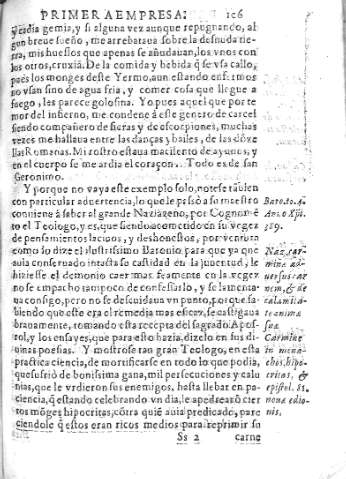 PRIMERA EMPRESA. 106
y cadia gemia, y si alguna vez aunque repugnando, al
gun breue sueño, me arrebataua sobre la desnuda tie-
rra, mis huessos que apenas se añudauan, los vnos con
los otros, cruxiã. De la comida y bebida q̃ se vsa callo,
pues los monges deste Yermo, aun estando enfermos
no vsan sino de agua fria, y comer cosa que llegue a
fuego, les parece golosina. Yo pues aquel que por te
mor del infierno, me condenè á este genero de carcel
siendo compañero de fieras y de escorpiones, muchas
vezes me hallaua entre las danças y bailes, de las dõze
llas Romanas. Mi rostro estaua macilento de ayunos, y
en el cuerpo se me ardia el coraçon. Todo es de san
Geronimo.
Y porque no vaya este exemplo solo, notese tãbien
con particular aduertencia, lo que le passò a su maestro
conuiene à saber al grande Naziãzeno, por Cognomẽ
to el Teologo, y es, que siendo acometido en su vegez
de pensamientos laciuos, y deshonestos, por ventura
como lo dize el Ilustrissimo Baronio para que ya que
auia conseruado intacta su castidad en la juuentud, le
hiziesse el demonio caer mas feamente en la vegez
no se empacho tampoco de confessarlo, y se lamenta-
ua consigo, pero no se descuidaua vn punto, porque sa-
biendo que este era el remedia mas eficaz, se castigaua
brauamente, tomando esta recepta del sagrado Apos-
tol, y los ensayes, que para esto hazia, dizelo en sus di-
uinas poesias. Y mostrose tan gran Teologo, en esta
practica ciencia, de mortificarse en todo lo que podia,
que sufriò de bonissima gana, mil persecuciones y calu
nias, que le vrdieron sus enemigos, hasta lleuar en pa-
ciencia, q̃ estando celebrando vn dia, le apedrearõ cier
tos mõges hipocritas, cõtra quiẽ auia predicado, pare
ciendole q̃ estos eran ricos medios para reprimir su
Ss 2 carne
Baro. to. 4.
Ano
389.
Naz. car-
mine ad-
uersus car
nem, & de
calamita-
te animæ
suæ
Carmine
in mona-
chos hipo
critas, &
epistol. Si
nuæ edio-
nis.